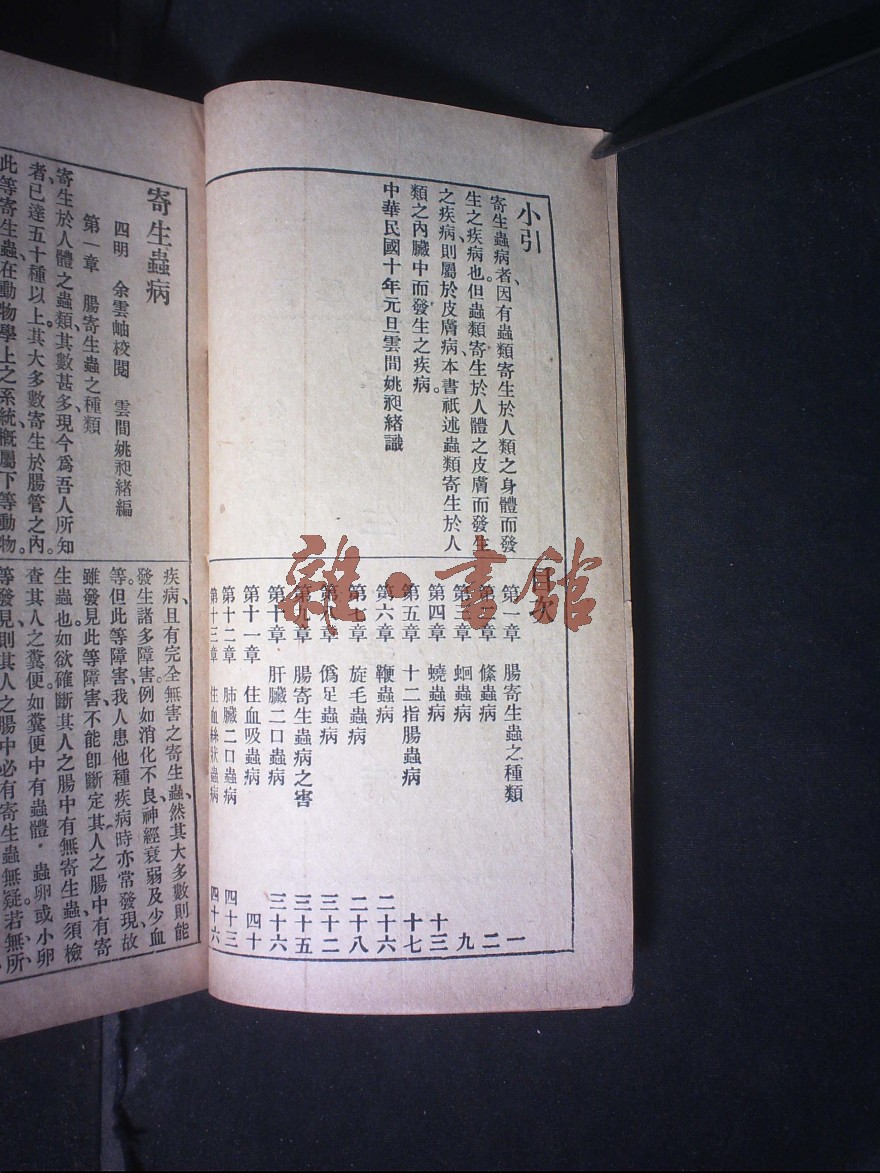 小引
寄生蟲病者、因有蟲類寄生於人類之身體而發
生之疾病也。但蟲類寄生於人體之皮膚而發生
之疾病、則屬於皮膚病。本書祇述蟲類寄生於人
類之內臟中而發生之疾病。
中華民國十年元旦雲間姚昶緒識
目次
第一章 腸寄生蟲之種類 一
第二章 絛蟲病 二
第三章 蛔蟲病 九
第四章 蟯蟲病 十三
第五章 十二指腸蟲病 十七
第六章 鞭蟲病 二十六
第七章 旋毛蟲病 二十八
第八章 僞足蟲病 三十二
第九章 腸寄生蟲病之害 三十五
第十章 肝臟二口蟲病 三十六
第十一章 住血吸蟲病 四十
第十二章 肺臟二口蟲病 四十三
第十三章 住血絲狀蟲病 四十六
寄生蟲病
四明 余雲岫校閱 雲間姚昶緒編
第一章 腸寄生蟲之種類
寄生於人體之蟲類、其數甚多、現今爲吾人所知
者、已達五十種以上。其大多數寄生於腸管之內。
此等寄生蟲、在動物學上之系統、概屬下等動物。
疾病、且有完全無害之寄生蟲、然其大多數則能
發生諸多障害。例如消化不良、神經衰弱及少血
等。但此等障害、我人患他種疾病時亦常發現、故
雖發見此等障害、不能卽斷定其人之腸中有寄
生蟲也。如欲確斷其人之腸中有無寄生蟲、須檢
查其人之糞便。如糞便中有蟲體、蟲卵或小卵
等發見、則其人之腸中必有寄生蟲無疑。若無所
雜·書館